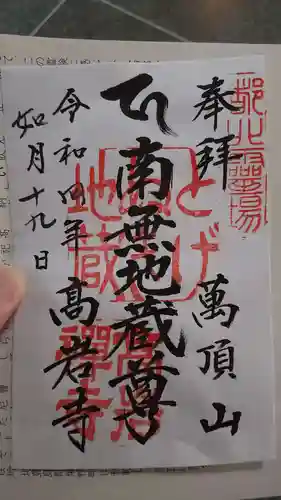 奉拝
萬頂山
南無地蔵尊
とげ
地蔵
令和四年
高岩寺
如月十九日